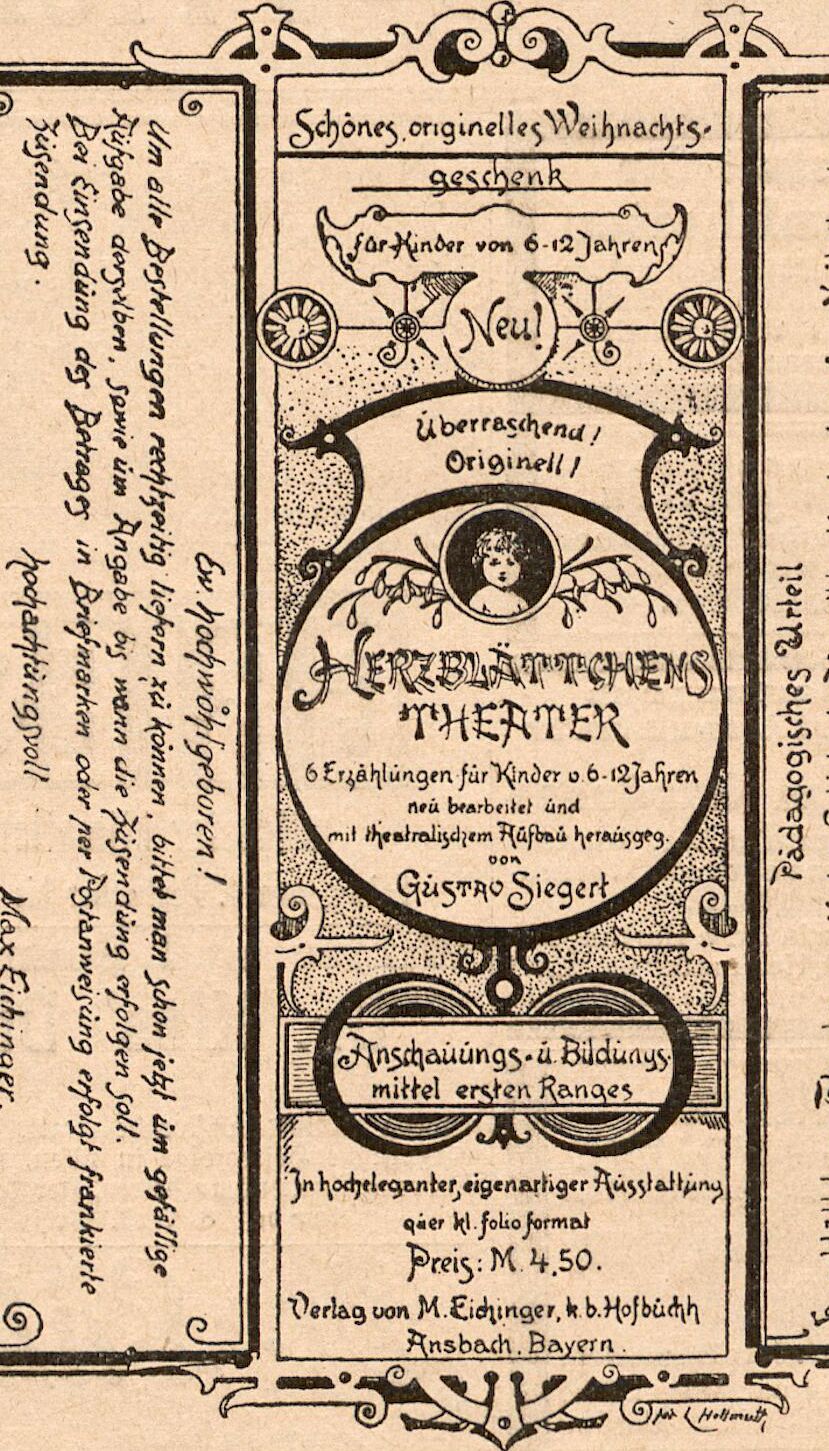 Ew. Hochwohlgeboren!
Um alle Bestellungen rechtzeitig liefern zu können, bittet man schon jetzt um gefällige
Aufgabe derselben, sowie um Angabe bis wann die Zusendung erfolgen soll.
Bei Einsendung des Betrages in Briefmarken oder per Postanweisung erfolgt frankierte
Zusendung.
Hochachtungsvoll
Max Eichinger.
Schönes, originelles Weihnachts-
geschenk
für Kinder von 6-12 Jahren
Neu!
Überraschend!
Originell!
HERZBLÄTTCHENS
THEATER
6 Erzählungen für Kinder v. 6-12 Jahren
neu bearbeitet und
mit theatralischem Aufbau herausgeg.
von
Gustav Siegert
Anschauungs- u. Bildungs-
mittel ersten Ranges
In hocheleganter, eigenartiger Ausstattung
quer kl. folio format
Preis: M. 4,50.
Verlag von M. Eichinger, k. b. Hofbuchh
Ansbach, Bayern.
Pädagogisches Urteil